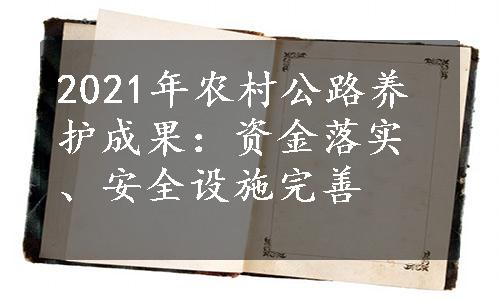 2021年农村公路养
护成果：资金落实
、安全设施完善